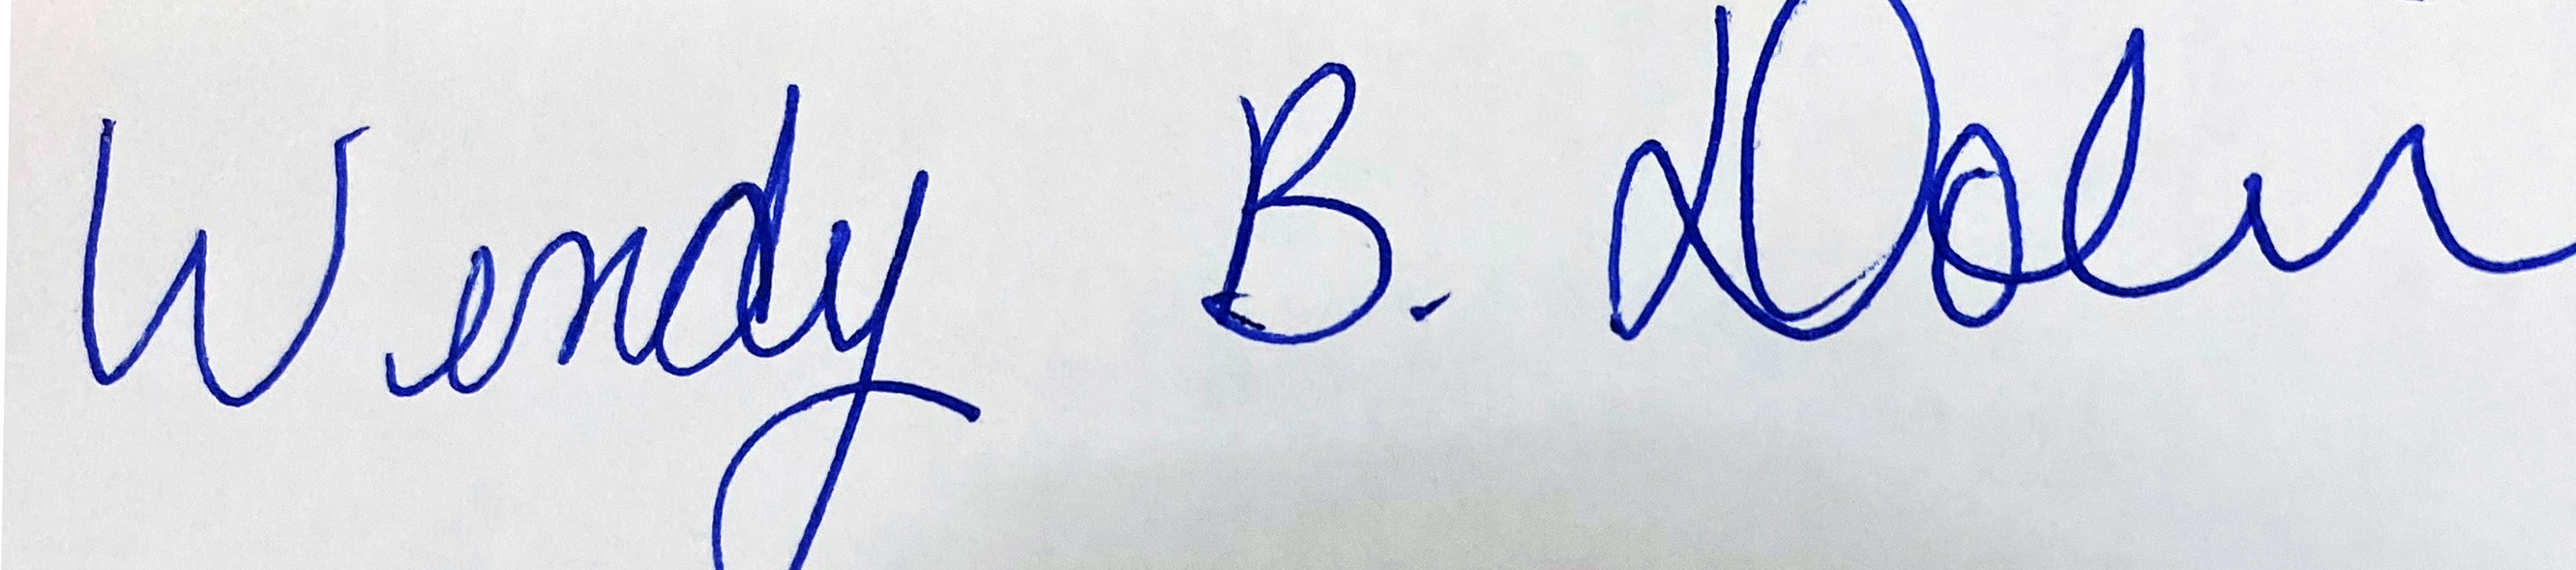 Wendy B. Dolin